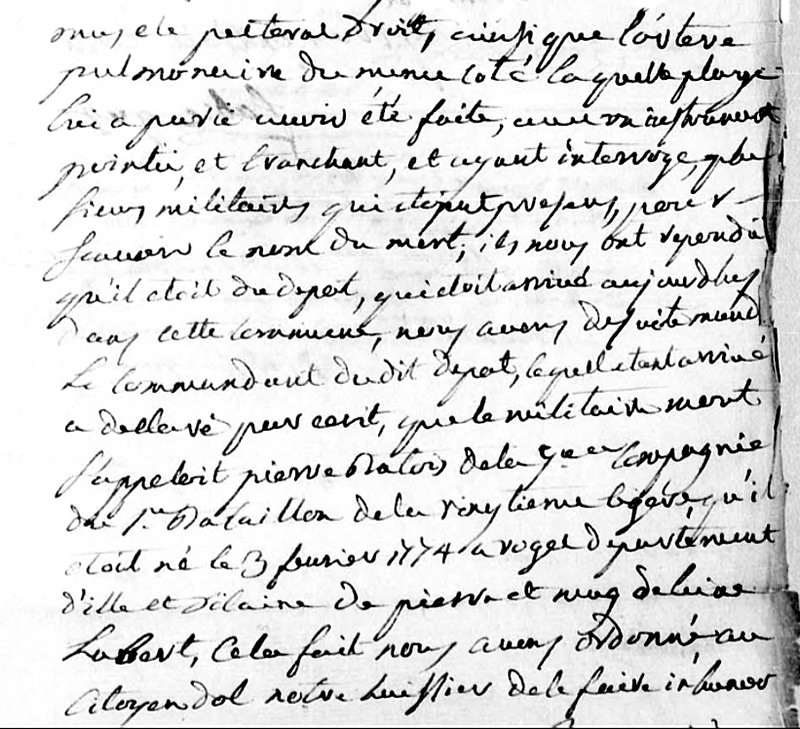 mus et le pectoral Droit, ainsi que l'artere
pulmonaire du meme coté laquelle playe
lui a parue avoir été faite, avec un instrument
pointu, et tranchant, et ayant interrogé, plu
sieurs militaires qui etoient presens, pour
scavoir le nom du mort; ils nous ont repondu
qu'il etoit du depot, qui doit arrivé aujourdhuy
dans cette commune, nous avons de suite mandé
Le commandant du dit depot, lequel etant arrivé
a declaré par ecrit, que le militaire mort
s'appeloit pierre Batois de la 7eme Compagnie
du 1er Bataillon de la vingtieme legere, qu'il
etoit né le 3 fevrier 1774 a roger departement
d'ille et vilaine de pierre et magdelaine
Lambert, Cela fait nous avons ordonné au
Citoyen dol notre huissier de le faire inhumer